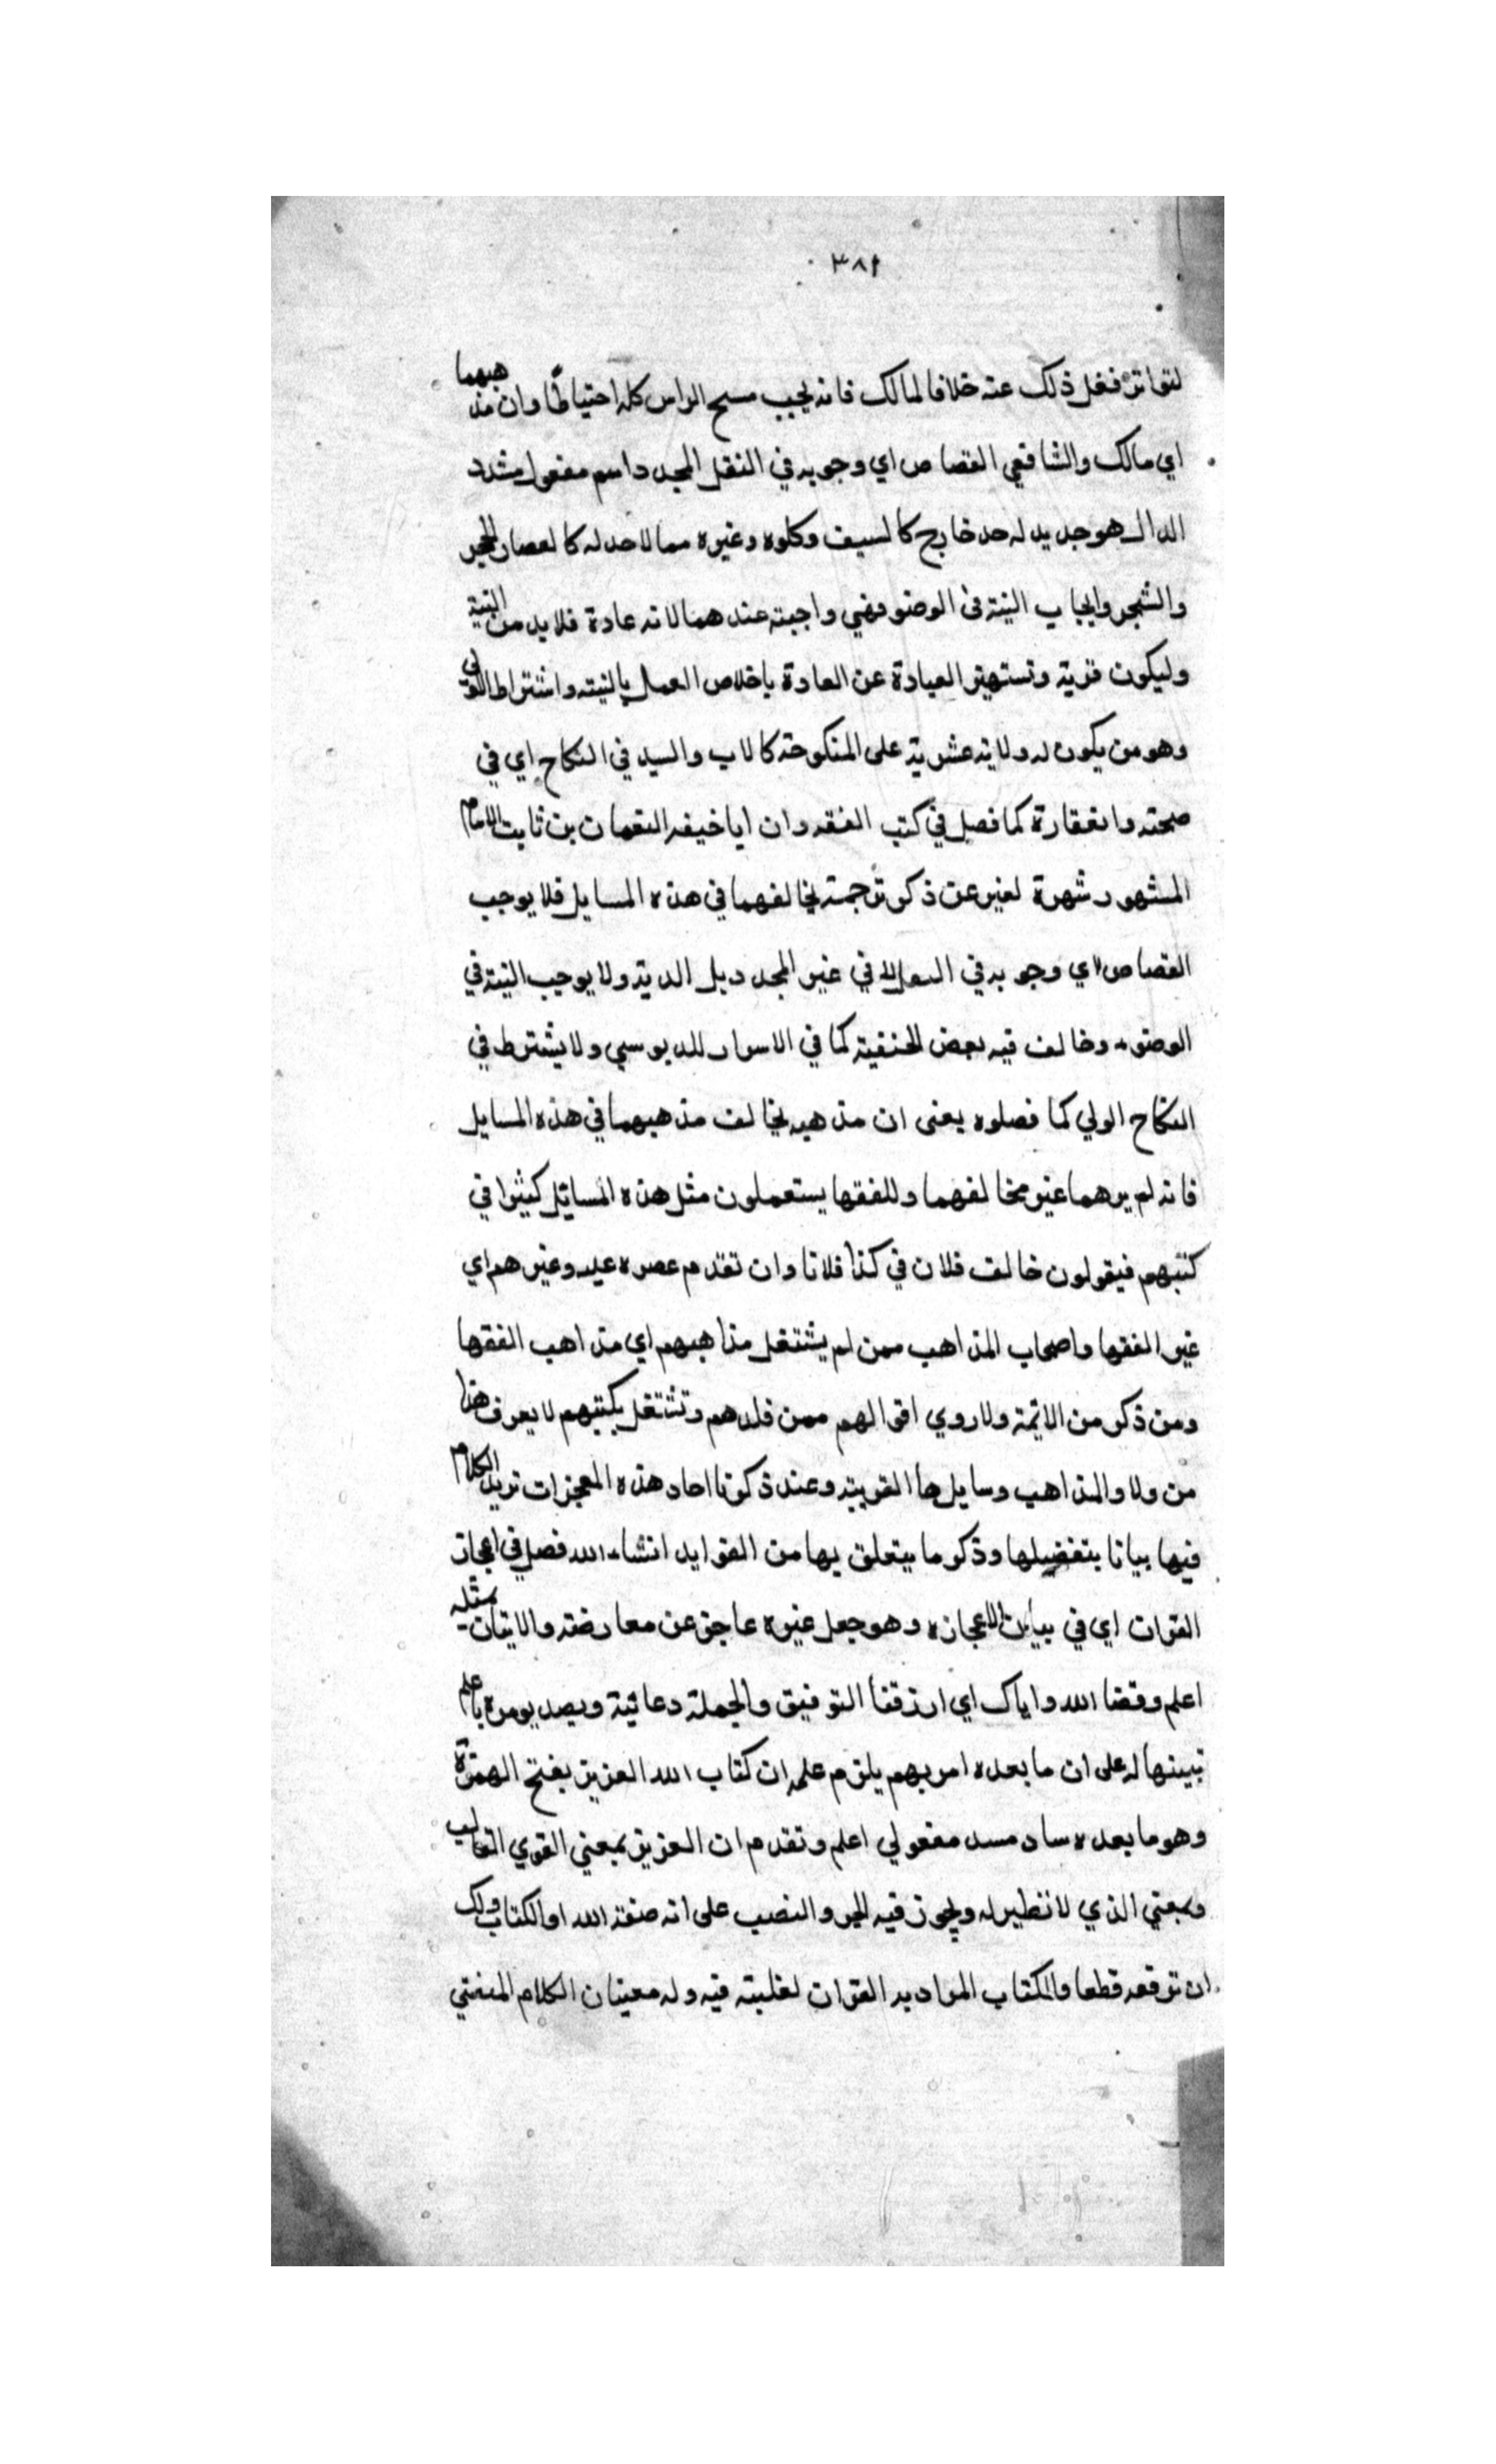 ٣٨٩
لتواتر فعل ذلك عنه خلافا لمالك فانه يجب مسح الراس كله احتياطا وان مذهبهما
اي مالك والشافعي القصاص اي وجوبه في النقل المحدد اسم مفعول مشدد
الدال هو جديد له حد خارج كالسيف وكلوه وغيره مما لا حد له كالعصا والحجر
والشجر وايجاب النية في الوضو فهي واجبته عندهما لانه عادة فلا بد من النية
وليكون قربة وتستهيز العبادة عن العادة باخلاص العمل بالنيته واشتراط الولي
وهو من يكون له ولاية عشرية على المنكوحة كالاب والسيد في النكاح اي في
صحته وانعقارة كما فصل في كتب الفقه وان ابا خيفه النعمان بن ثابت الامام
المشهور شهرة لغير عن ذكر ترجمته يخالفهما في هذه المسايل فلا يوجب
القصاص اي وجوبه في في غير المحدد بل الدية ولا يوجب النية في
الوضوء وخالف فيه بعض الحنفية كما في الاسرار للدبوسي ولا يشترط في
النكاح الولي كما فصلوه يعنى ان مذهبه يخالف مذهبهما في هذه المسايل
فانه لم يرهما غير مخالفهما وللفقها يستعملون مثل هذه المسائل كثيرا في
كتبهم فيقولون خالف فلان في كذا فلانا وان تقدم عصره عليه وغيرهم اي
غير الفقها واصحاب المذاهب ممن لم يشتغل مذاهبهم اي مذاهب الفقها
ومن ذكر من الائمة ولا روي اقوالهم ممن قلدهم وتشتغل بكتبهم لا يعرف هذا
من ولا والمذاهب وسايلها القويية وعند ذكرنا احاد هذه المعجزات نريد الكلام
فيها بيانا بتفضيلها وذكر ما يتعلق بها من الفوايد انشاء الله فصل في اعجاز
القران اي في بيان اعجازه وهو جعل غيره عاجز عن معارضته والاتيان بمثله
اعلم وفقنا الله واياك اي ارزقنا التوفيق والجملة دعائية وبصد يومره باعلم
تبينها له على ان ما بعده امر بهم يلزم علمه ان كتاب الله العزيز بفتح الهمزة
وهو ما بعده ساد مسد مفعولي اعلم وتقدم ان العزيز بمعني القوي الغالب
وبمعني الذي لا نظير له ويجوز فيه الجر والنصب على انه صفة الله او الكتاب ولك
ان ترفعه قطعا والكتاب المراد به القران لغلبته فيه وله معنيان الكلام المنفي